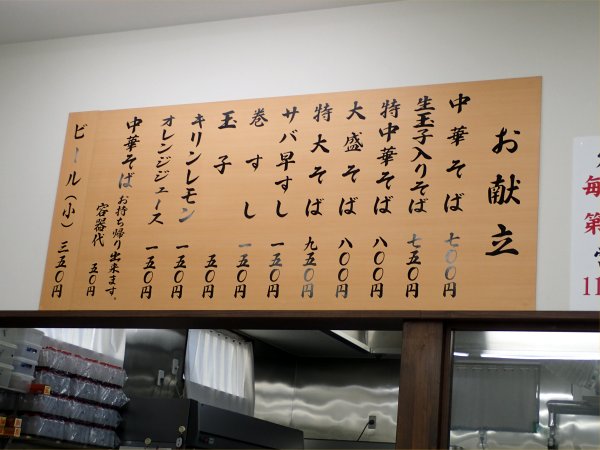 お献立
中華そば 七〇〇円
生玉子入りそば 七五〇円
特中華そば 八〇〇円
大盛そば 八〇〇円
特大そば 九五〇円
サバ早すし 一五〇円
巻すし 一五〇円
玉子 五〇円
キリンレモン 一五〇円
オレンジジュース 一五〇円
中華そば お持ち帰り出来ます。
容器代 五〇円
ビール(小) 三五〇円
毎
第
11